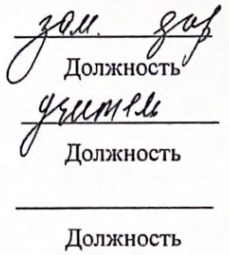 зам. дир
Должность
учитель
Должность
Должность